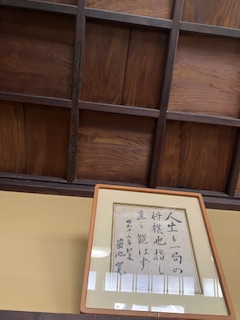 人生は一局の
将棋也指し
直し能はず
菊池寛